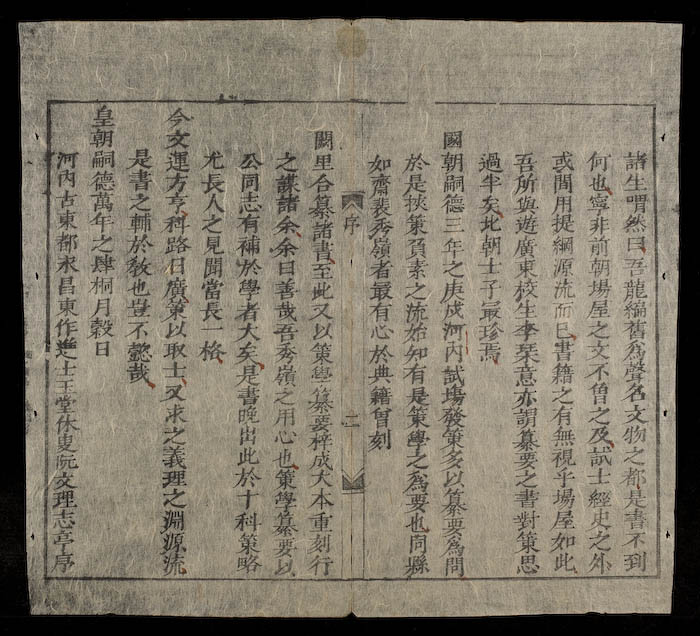 諸生喟然曰吾龍編舊爲聲名文物之都是書不到
何也寧非前朝場屋之文不曾之及試士經史之外
或間用提綱源流而已書籍之有無視乎場屋如此
吾所與遊廣東校生李琹意亦謂纂要之書對策思
過半矣此朝士子最珍焉
國朝嗣德三年之庚戌河內試塲發策多以纂要爲問
於是挾策負素之流始知有是策學之爲要也同縣
如齋裴秀嶺者最有心於典籍曾刻
序
二
闕里合纂諸書至此又以策學纂要梓成大本重刻行
之謀諸余余曰善哉吾秀嶺之用心也策學纂要以
公同志有補於學者大矣是書晚出此於十科策略
尤長人之見聞當長一格
今文運方亨科路日廣策以取士又求之義理之淵源流
是書之輔於敎也豈不懿哉
皇朝嗣德萬年之肆桐月穀日
河內古東都永昌東作進士玉堂休叟阮文理志亭序